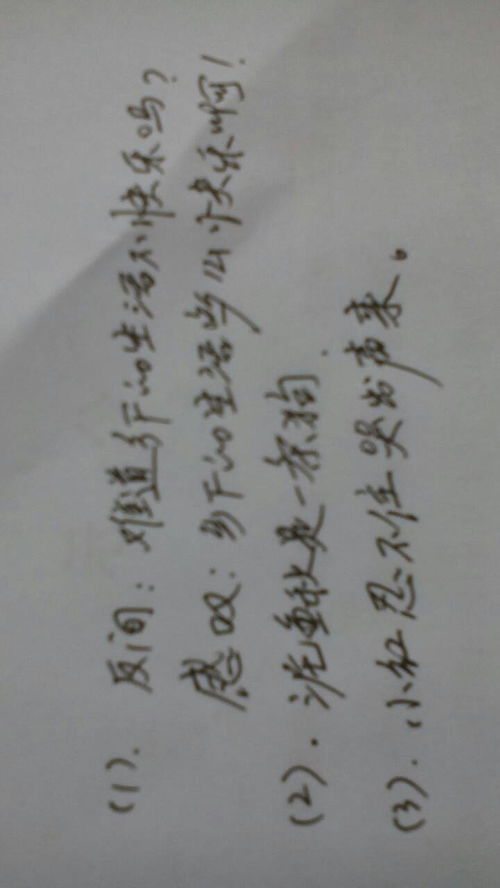 (1). 反问：难道乡下的生活不快乐吗？
感叹：乡下的生活多么快乐啊！
(2). 泥鳅是一条狗.
(3). 小红忍不住哭出声来。